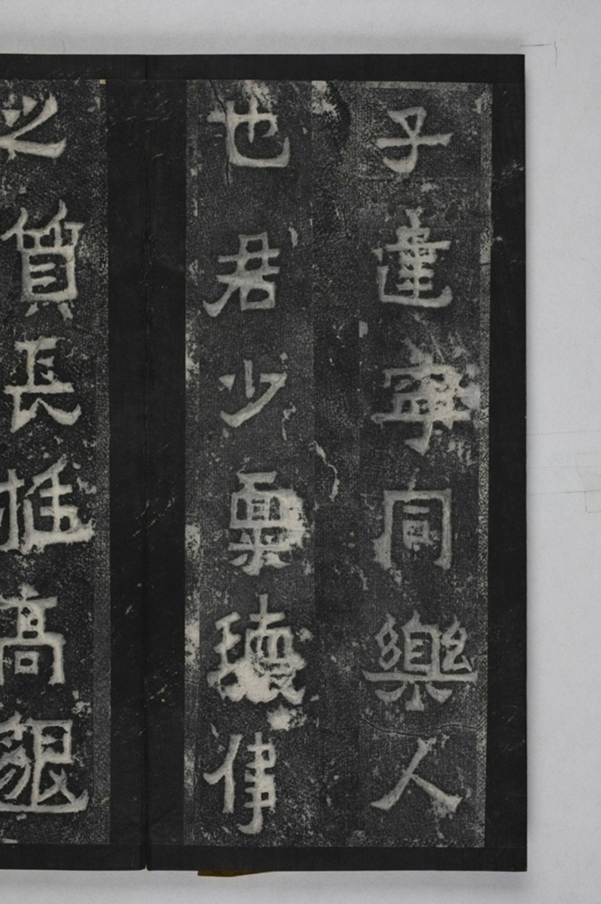 子建寧同樂人
也君少稟瓌偉
之質長挺高邈